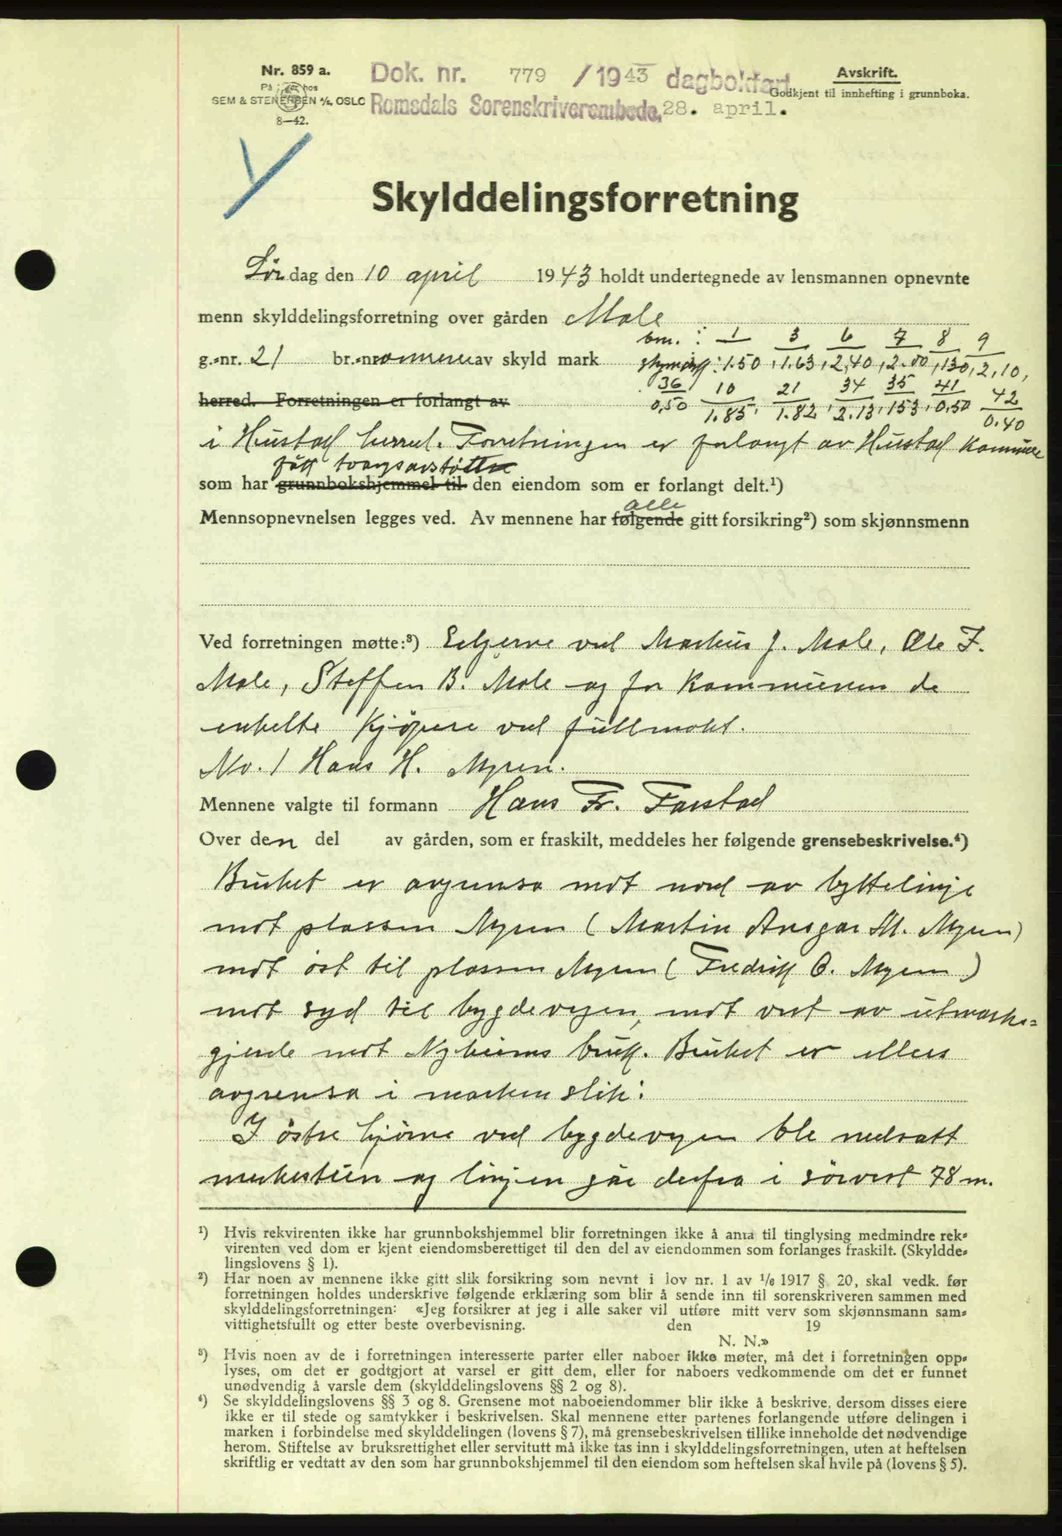 Nr. 859 a.
På lager hos
SEM & STENERSEN A/S, OSLO
8—42.
Dok. nr. 779 /1943 dagbokført
Romsdals Sorenskriverembede, 28. april.
Avskrift.
Godkjent til innhefting i grunnboka.
Skylddelingsforretning
Lør dag den 10 april 1943 holdt undertegnede av lensmannen opnevnte
menn skylddelingsforretning over gården Male
bnr. : 1 3 6 7 8 9
g.-nr. 21 br.-nr. av skyld mark skymark : 1.50, 1.63, 2,40, 2.00, 1.30, 2,10,
36 10 21 34 35 41 42
0,50 1.85, 1.82, 2.13, 1.53, 0.50 0.40
herred. Forretningen er forlangt av
i Hustad herred. Forretningen er forlangt av Hustad kommune
fått
som har grunnbokshjemmel til den eiendom som er forlangt delt.¹)
alle
Mennsopnevnelsen legges ved. Av mennene har følgende gitt forsikring²) som skjønnsmenn
Ved forretningen møtte:³) Eigerne ved Markus J. Male, Ole F.
Male, Steffen B. Male og for kommunen de
enkelte kjøpere ved fullmakt.
No. 1 Hans H. Myren.
Mennene valgte til formann Hans Fr. Farstad
Over den del av gården, som er fraskilt, meddeles her følgende grensebeskrivelse.⁴)
Bruket er avgrensa mot nord av byttelinje
mot plassen Myren (Martin Ansgar M. Myren)
mot øst til plassen Myren (Fredrik O. Myren)
mot syd til bygdevegen, mot vest av utmarks-
gjerde mot Nyheims bruk. Bruket er ellers
avgrensa i marken slik:
I østre hjørne ved bygdevegen ble nedsatt
merkestein og linjen går derfra i sørvest 78 m.
¹) Hvis rekvirenten ikke har grunnbokshjemmel blir forretningen ikke å anta til tinglysing medmindre rek-
virenten ved dom er kjent eiendomsberettiget til den del av eiendommen som forlanges fraskilt. (Skyldde-
lingslovens § 1).
²) Har noen av mennene ikke gitt slik forsikring som nevnt i lov nr. 1 av 1/6 1917 § 20, skal vedk. før
forretningen holdes underskrive følgende erklæring som blir å sende inn til sorenskriveren sammen med
skylddelingsforretningen: «Jeg forsikrer at jeg i alle saker vil utføre mitt verv som skjønnsmann sam-
vittighetsfullt og etter beste overbevisning. den 19
N. N.»
³) Hvis noen av de i forretningen interesserte parter eller naboer ikke møter, må det i forretningen opp-
lyses, om det er godtgjort at varsel er gitt dem, eller for naboers vedkommende om det er funnet
unødvendig å varsle dem (skylddelingslovens §§ 2 og 8).
⁴) Se skylddelingslovens §§ 3 og 8. Grensene mot naboeiendommer blir ikke å beskrive, dersom disses eiere
ikke er til stede og samtykker i beskrivelsen. Skal mennene etter partenes forlangende utføre delingen i
marken i forbindelse med skylddelingen (lovens § 7), må grensebeskrivelsen tillike inneholde det nødvendige
herom. Stiftelse av bruksrettighet eller servitutt må ikke tas inn i skylddelingsforretningen, uten at heftelsen
skriftlig er vedtatt av den som har grunnbokshjemmel til den eiendom som heftelsen skal hvile på (lovens § 5).